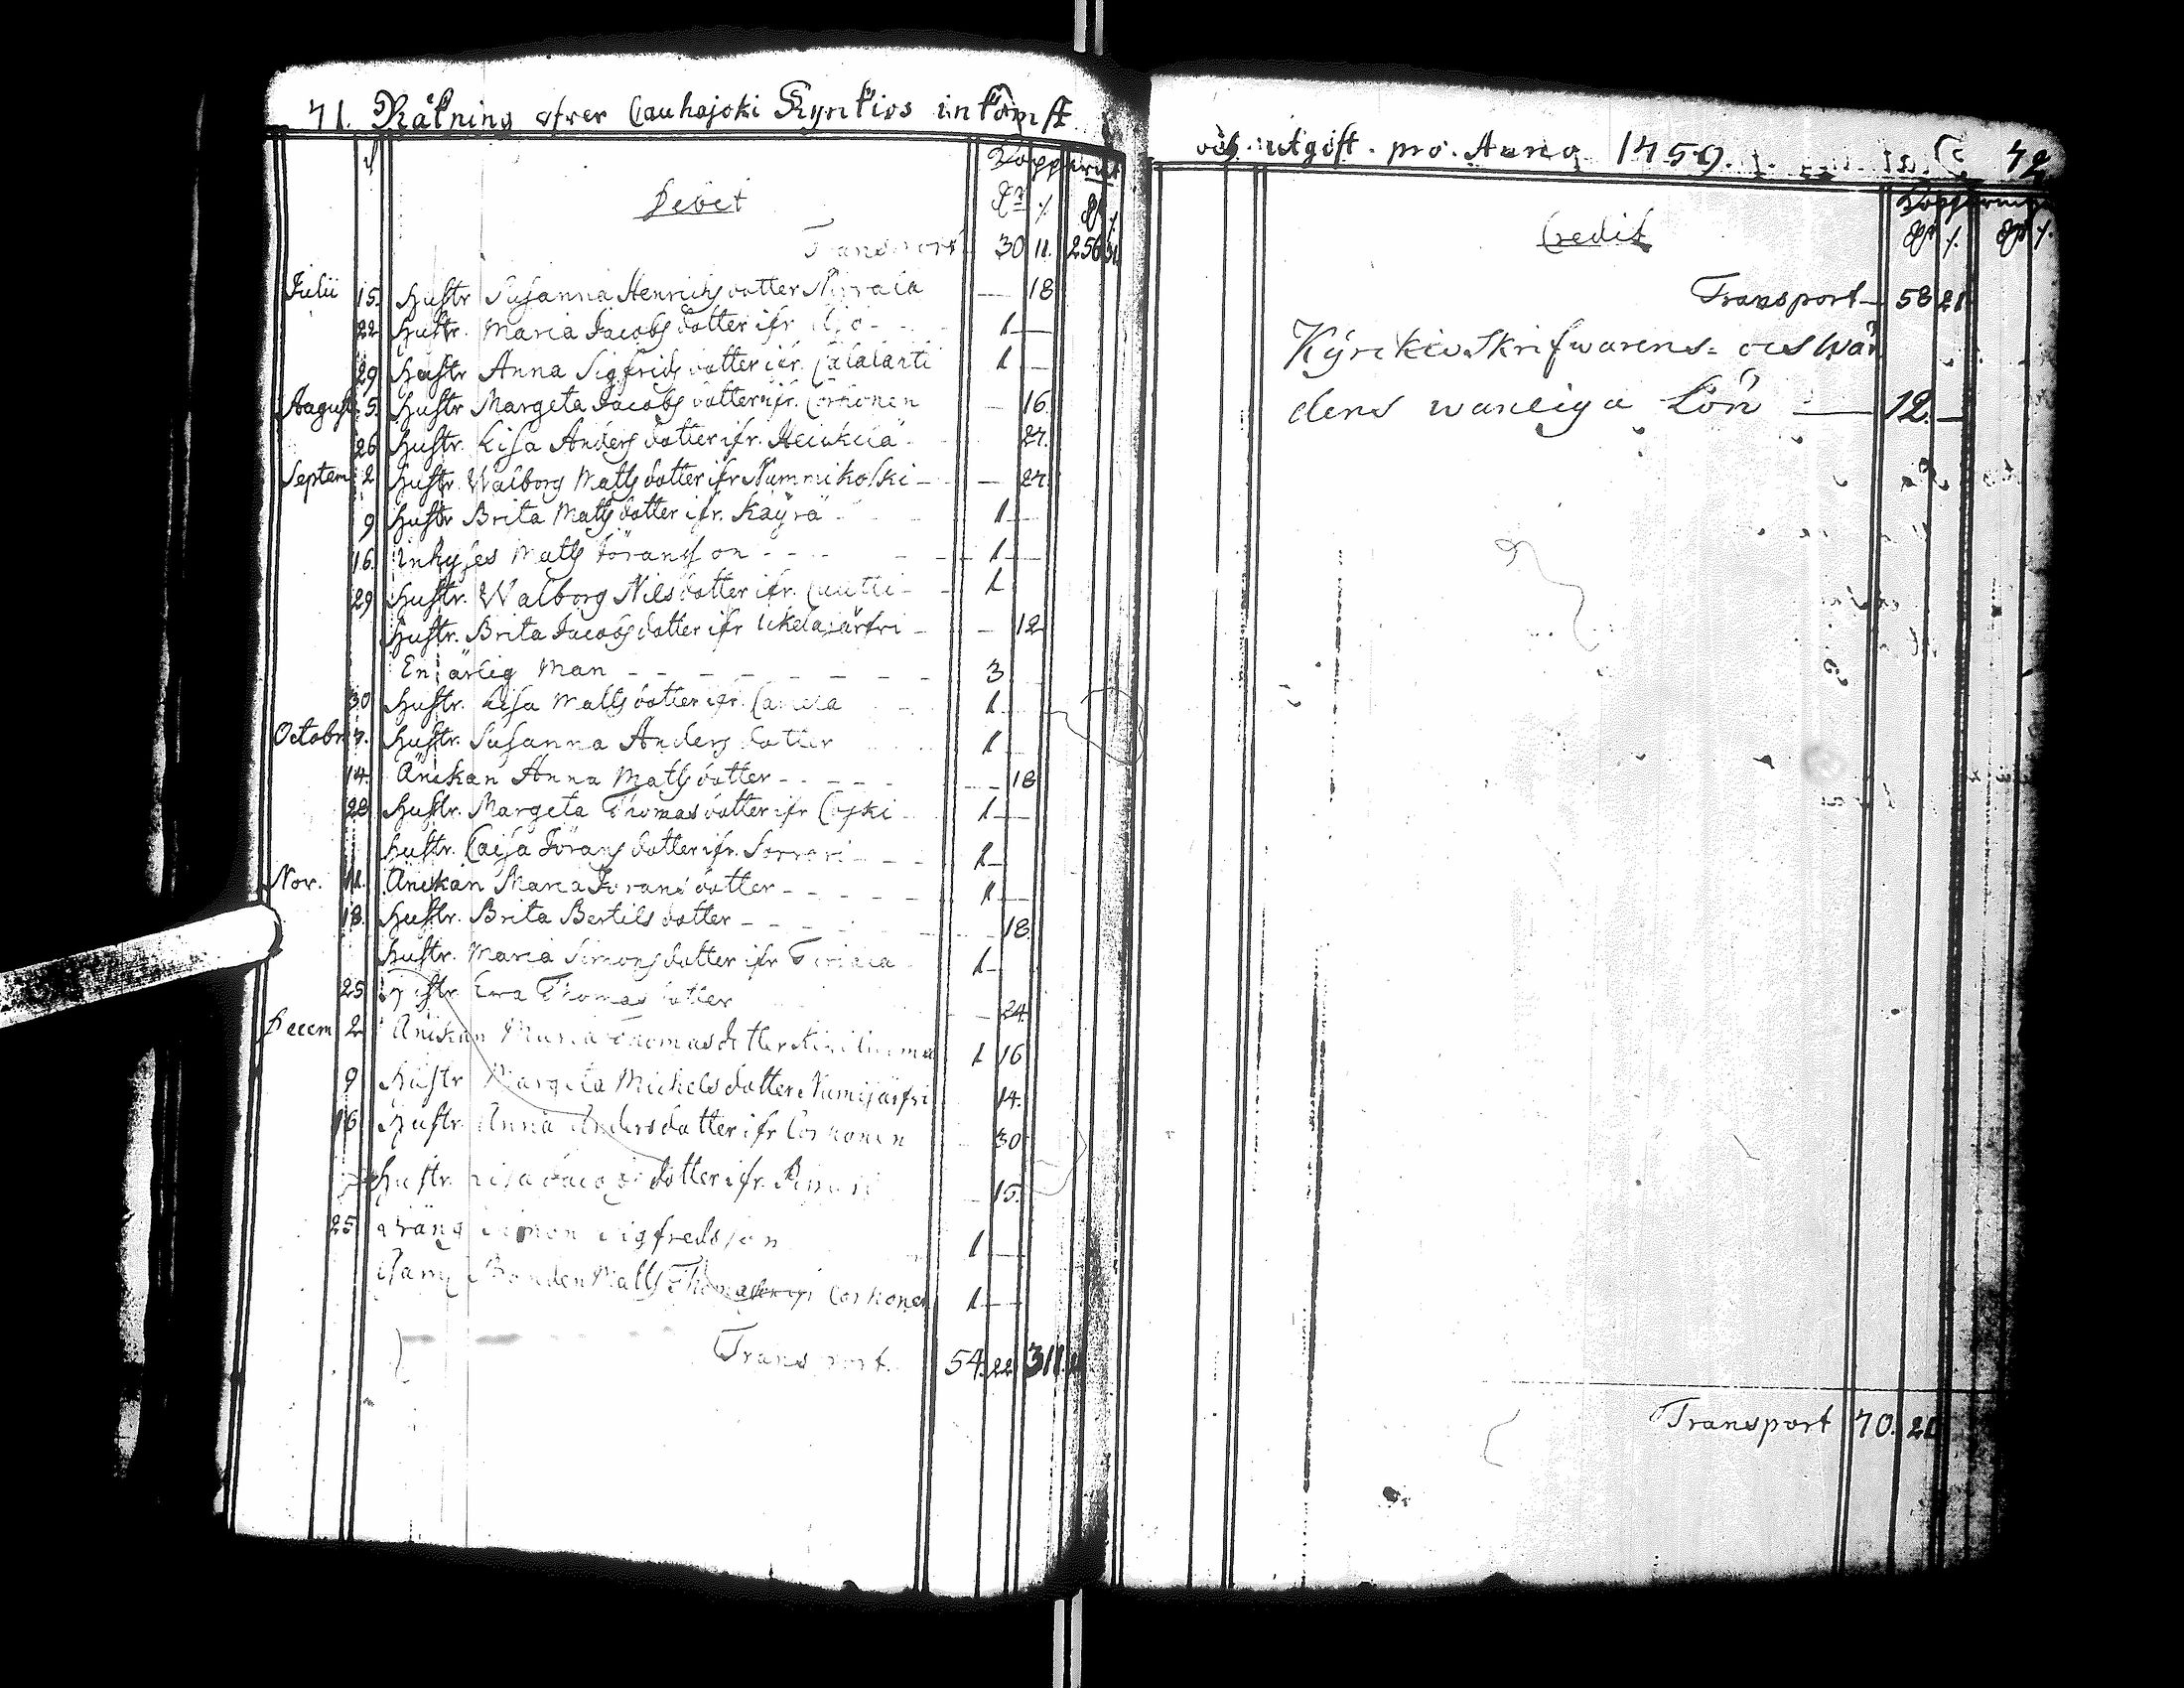 71. Räkning öfwer Cauhajoki Kyrckios inkomst
Kopparmt
Debet
Transport 30 11. 256 31.
Julii 15. Hustr. Susanna Henrichsdotter — 18
22 Hustr. Maria Jacobsdotter ifr. 1 —
29 Hustr Anna Sigfridsdotter ifr. 1 —
August. 5. Hustr Margeta Jacobsdotter ifr. Corhonen — 16
26 Hustr. Lisa Andersdotter ifr. Heickilä 27.
Septem. 2 Hustr. Walborg Mattsdotter ifr Nummikoski — 27
9 Hustr Brita Mattsdotter ifr. Käyrä 1 —
16. Inhyses Matts Jöransson 1 —
29 Hustr. Walborg Nilsdotter ifr. 1
Hustr. Brita Jacobsdotter ifr — 12
En ärlig Man 3
30 Hustr. Lisa Mattsdotter ifr. 1
Octobr. 7. Hustr. Susanna Andersdotter 1
14. Änckan Anna Mattsdotter — 18
28 Hustr. Margeta Thomasdotter ifr Coski 1 —
Hustr. Caisa Jöransdotter ifr. 1 —
Nov. 11. Änckan Maria Joransdotter 1 —
18. Hustr. Brita Bertilsdotter — 18.
Hustr. Maria Simonsdotter ifr 1 —
25 Hustr. Ewa Thomasdotter — 24.
Decem 2 Änckan Maria Thomasdotter 1 16
9 Hustr Margeta Michelsdotter Numijärfwi 14.
16 Hustr. Anna Andersdotter ifr Corhonen 30
Hustr. Lisa Jacobsdotter ifr. — 15.
25 Dräng Simon Sigfredsson 1 —
Bonden Matts Thomasson ifr Corhonen 1 —
Transport. 54. 22 311.
och utgift. pro. Anno 1759. 72
Kopparmynt
Credit
Transport — 58 21
Kyrckio Skrifwarens= och Wär
dens wanliga Lön — 12. —
Transport 70. 21